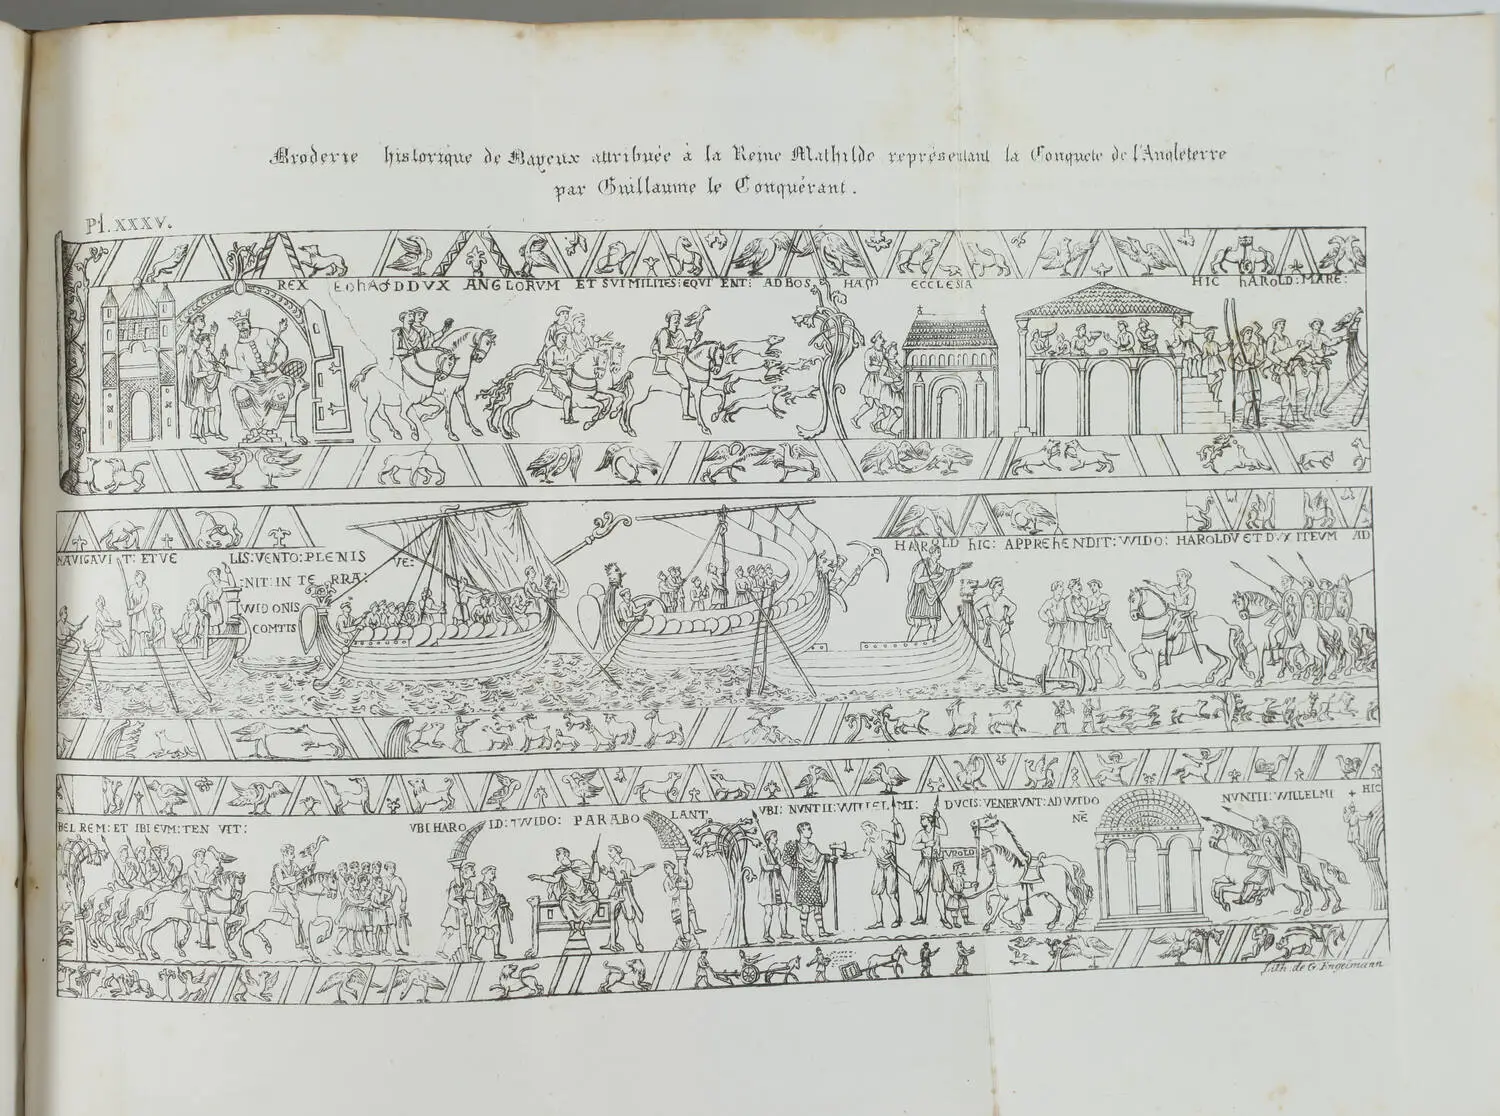 Broderie historique de Bayeux attribuée à la Reine Mathilde représentant la Conquete de l'Angleterre
par Guillaume le Conquérant.
Pl. XXXV.
REX DDVX ANGLORVM ET SVI MILITES: EQVI ENT: AD BOS HAM ECCLESIA HIC hAROLD: MARE:
NAVIGAVI T: ET VE LIS: VENTO: PLENIS VE: HAROLD hIC: APPREhENDIT: WIDO: HAROLDV ET DVX ITEVM AD
NIT: IN TE RRA:
WIDONIS
COMTIS
BEL REM: ET IBI EVM: TEN VIT: VBI HARO LD: WIDO: PARABO LANT VBI: NVNTII: WILLELMI: DVCIS: VENERVNT: AD WIDO NUNTII: WILLELMI + HIC
NĒ
VROLD
Lith. de G. Engelmann